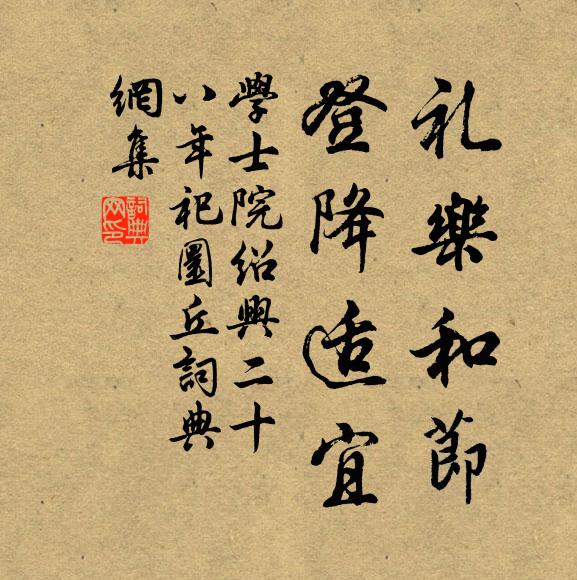 礼樂和節
登降适宜
學士院紹興二十
八年祀圜丘詞典
網集
詞典網印